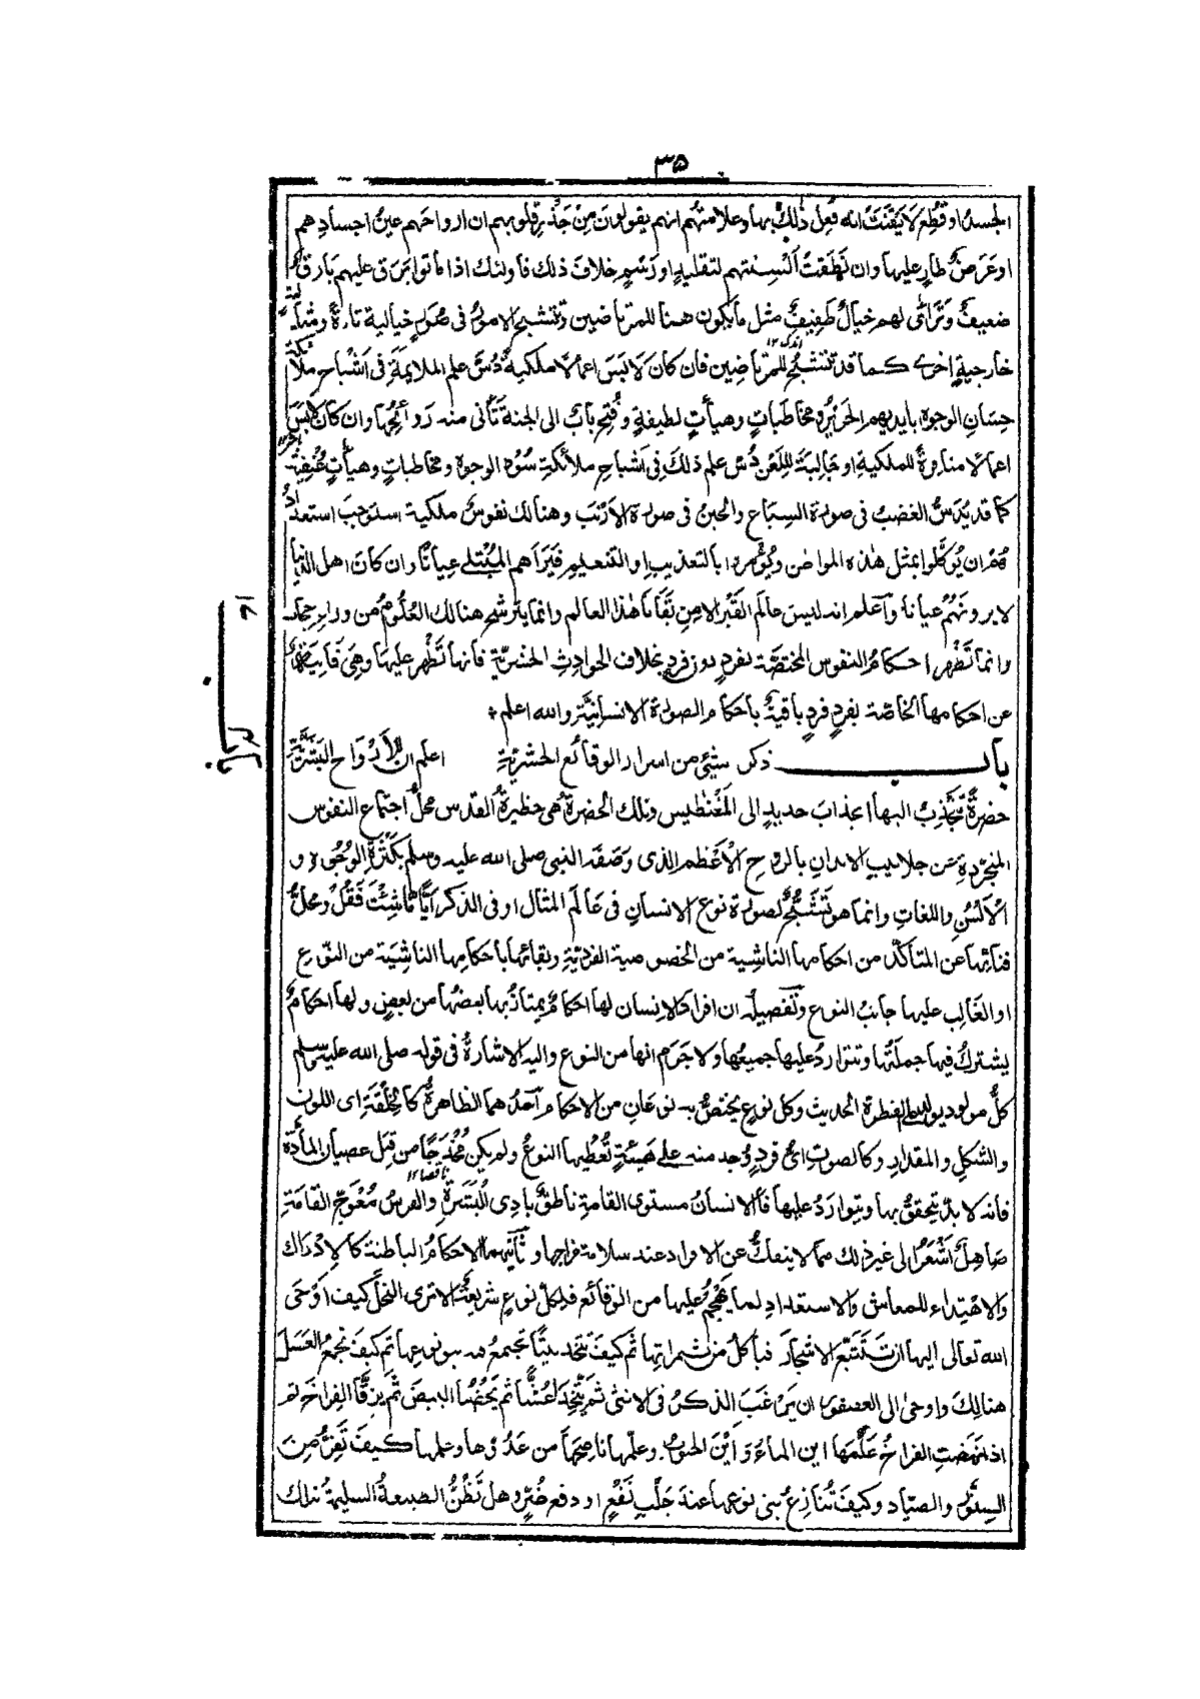 ۳۵
الجسدُ او قُطِع لَا يَقْنَتُ انه فُعِل ذٰلكَ بها وعلامتُهم انهم يقولون مِنْ جَذْرِ قلوبهم ان ارواحهم عينُ اجسادِهم
او عَرَضٌ طارٍ عليها وان نَطَقتْ اَلْسِنتهم لتقليدٍ او رَسْمٍ خلافَ ذلك فاولئك اذا ماتوا بَرَق عليهم بَارقٌ
ضعيفٌ وتَرَاٰى لهم خيالٌ طَفِيفٌ مثل ما يكون هنا للمرتاضين وتتشبح الامورُ فى صُوَرٍ خيالية تارةً ومثالية
خارجيةٍ اخرٰے كما قد تتشبَّحُ للمرتاضين فان كان لَابَسَ اعمالًا ملكيةً دُسَّ علم الملايمَةِ فى اَشْباحِ ملٰئكة
حِسَانِ الوجوهِ بايديهم الحَرِيْرُ ومخاطباتٍ وهيأتٍ لطيفةٍ وفُتِح بابٌ الى الجنة تَأْتى منه رَوَائِحُها وان كان لابَسَ
اعمالًا منافرةً للملكيةِ او جَالِبَةً لِلَّعْن دُسَّ علم ذلك فى اَشباحِ ملائكةٍ سُوْدِ الوجوهِ ومخاطباتٍ وهيأتٍ عُنِيْفة
كما قد يُدَسُّ الغضبُ فى صورة السِبَاعِ والجبنُ فى صورة الاَرْنَب وهنالك نفوسٌ ملكية استوجبَ استعدادُ
هُمْ ان يُوَكَّلوا بمثل هٰذه المواطن ويُؤْمروا بالتعذيب او التنعيم فيَرَاهم المُبْتلے عِياناً وان كان اهل الدنيا
لا يرونَهُمْ عيانا وَاعلم انه ليس عالَم القَبْر الا من بَقَايَا هٰذا العالم وانما يترشح هنالك العُلُومُ من وراءِ حِجابٍ
وانما تَظْهر احكامُ النفوس المختصَّة بفردٍ دون فردٍ بخلاف الحوادثِ الحشريّة فانها تَظْهر عليها وهِىَ فَانيةٌ
عن احكامها الخاصّة بفردٍ فردٍ باقيةٌ باحكام الصورة الانسانيَّة والله اعلم
باب ذكر شئى من اسرار الوقائع الحشريّة اعلم ان للاَرْوَاح البَشَرِيَّة
حضرةً تَنْجَذِبُ اليها انجذابَ حديدٍ الى المَغْنَطيس وتلك الحضرةُ هى حظيرةُ القدس محلُّ اجتماع النفوس
المتجرّدةِ عن جلابيبِ الابدانِ بالروحِ الْاَعْظم الذى وَصَفه النبى صلى الله عليه وسلم بكَثْرةِ الوُجُوه و
الْاَلْسُنِ واللغاتِ وانما هو تَشَبُّحٌ لصورة نوعِ الانسانِ فى عَالَم المثال او فى الذكر اَيًّا ما شِئْتَ فَقُلْ ومحلُّ
فنائِها عن المتأكّد من احكامها الناشِية من الخصوصية الفرديّة وبقائها باَحكامِها الناشِيَة من النّوعِ
او الغَالِب عليها جانبُ النوع وتفصيلُه ان افرادَ الانسان لها احكامٌ يمتاز بها بعضُها من بعضٍ ولها احكامٌ
يشتركُ فيها جملتُها وتتوارَدُ عليها جميعُها ولا جَرَم انها من النوع واليه الاشارةُ فى قوله صلى الله عليه وسلم
كلُّ مولود يولد على الفطرة الحديث وكل نوعٍ يختصُّ به نوعَانِ من الاحكام اَحدُهما الظاهرةُ كالخِلْقَةِ اى اللون
والشكلِ والمقدارِ وكالصوتِ اىُّ فردٍ وُجد منه على هَيْئةٍ تُعْطِيها النوعُ ولم يكن مُخْدَجًا من قِبَل عصيان المادّة
فانه لا بدَّ يتحققُ بها ويتوارَدُ عليها فالانسانُ مستوى القامةِ ناطقٌ بادى الْبَشَرَةِ والفرسُ مُعْوَجُّ القامَةِ
صَاهِلٌ اَشْعَرُ الى غير ذلك مما لا ينفكُّ عن الافراد عند سلامة مزاجها وثانيهما الاحكامُ الباطنة كالاِدْراك
والاهْتِداء للمعاش والاستعدادِ لما يَهْجُم عليها من الوقائع فلكلّ نوعٍ شريعةٌ الا ترى النحلَ كيف اَوْحَى
الله تعالى اليها ان تَتَتَبَّع الاشجارَ فتأكلَ من ثمراتها ثم كيفَ تتّخذ بيتًا يجتمعُ فيه بنو نوعها ثم كيفَ تجمعُ العَسَلَ
هنالِكَ واوحىٰ الى العصفور ان يَرْغَبَ الذكرُ فى الانثى ثم يتّخِذَا عُشًّا ثم يَحْضُنا البيضَ ثم يَزُقَّا الفِراخَ ثم
اذا نهَضتِ الفراخُ عَلَّمَها اين الماءُ وَاَيْنَ الحبوبُ وعلّمها ناصِحَها من عدُوّها وعلمها كيفَ تَفِرُّ مِنَ
السِنَّوْرِ والصيّادِ وكيفَ تُنازِعُ بنى نوعها عندَ جَلْبِ نَفْعٍ او دفعِ ضُرٍّ وهل تَظُنُّ الطبيعةُ السليمةُ تلك